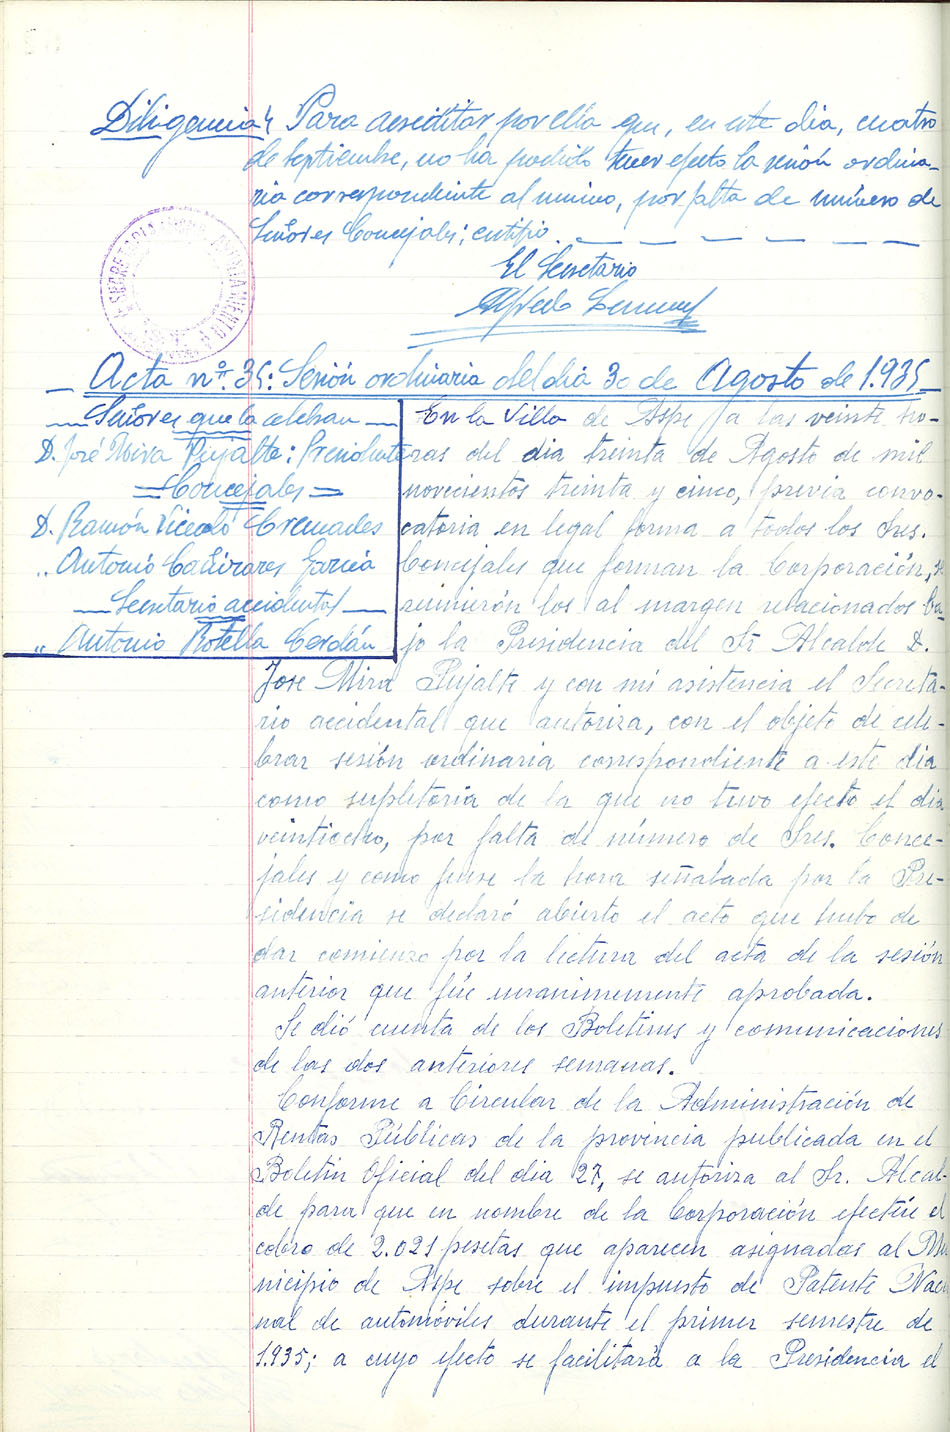 Diligencia: Para acreditar por ella que, en este dia, cuatro
de Septiembre, no ha podido tener efecto la sesión ordina-
ria correspondiente al mismo, por falta de número de
Señores Concejales; certifico.
El Secretario
Alfredo
SECRETARIA AYUNTAMIENTO
Acta nº. 35: Sesión ordinaria del dia 30 de Agosto de 1.935
Señores que la celebran
D. José Mira Pujalte: Presidente
Concejales
D. Ramón Vicedo Cremades
" Antonio Cañizares García
Secretario accidental
" Antonio Botella Cerdán
En la Villa de Aspe a las veinte ho-
ras del dia treinta de Agosto de mil
novecientos treinta y cinco, previa convo-
catoria en legal forma a todos los Sres.
Concejales que forman la Corporación, se
reunierón los al margen relacionados ba-
jo la Presidencia del Sr Alcalde D.
Jose Mira Pujalte y con mi asistencia el Secreta-
rio accidental que autoriza, con el objeto de cele-
brar sesión ordinaria correspondiente a este dia
como supletoria de la que no tuvo efecto el dia
veintiocho, por falta de número de Sres. Conce-
jales y como fuese la hora señalada por la Pre-
sidencia se declaró abierto el acto que hubo de
dar comienzo por la lectura del acta de la sesión
anterior que fúe unanimemente aprobada.
Se dió cuenta de los Boletines y comunicaciones
de las dos anteriores semanas.
Conforme a Circular de la Administración de
Rentas Públicas de la provincia publicada en el
Boletin Oficial del dia 27, se autoriza al Sr. Alcal-
de para que en nombre de la Corporación efectúe el
cobro de 2.021 pesetas que aparecen asignadas al Mu
nicipio de Aspe sobre el impuesto de Patente Nacio
nal de automóviles durante el primer semestre de
1.935; a cuyo efecto se facilitará a la Presidencia el